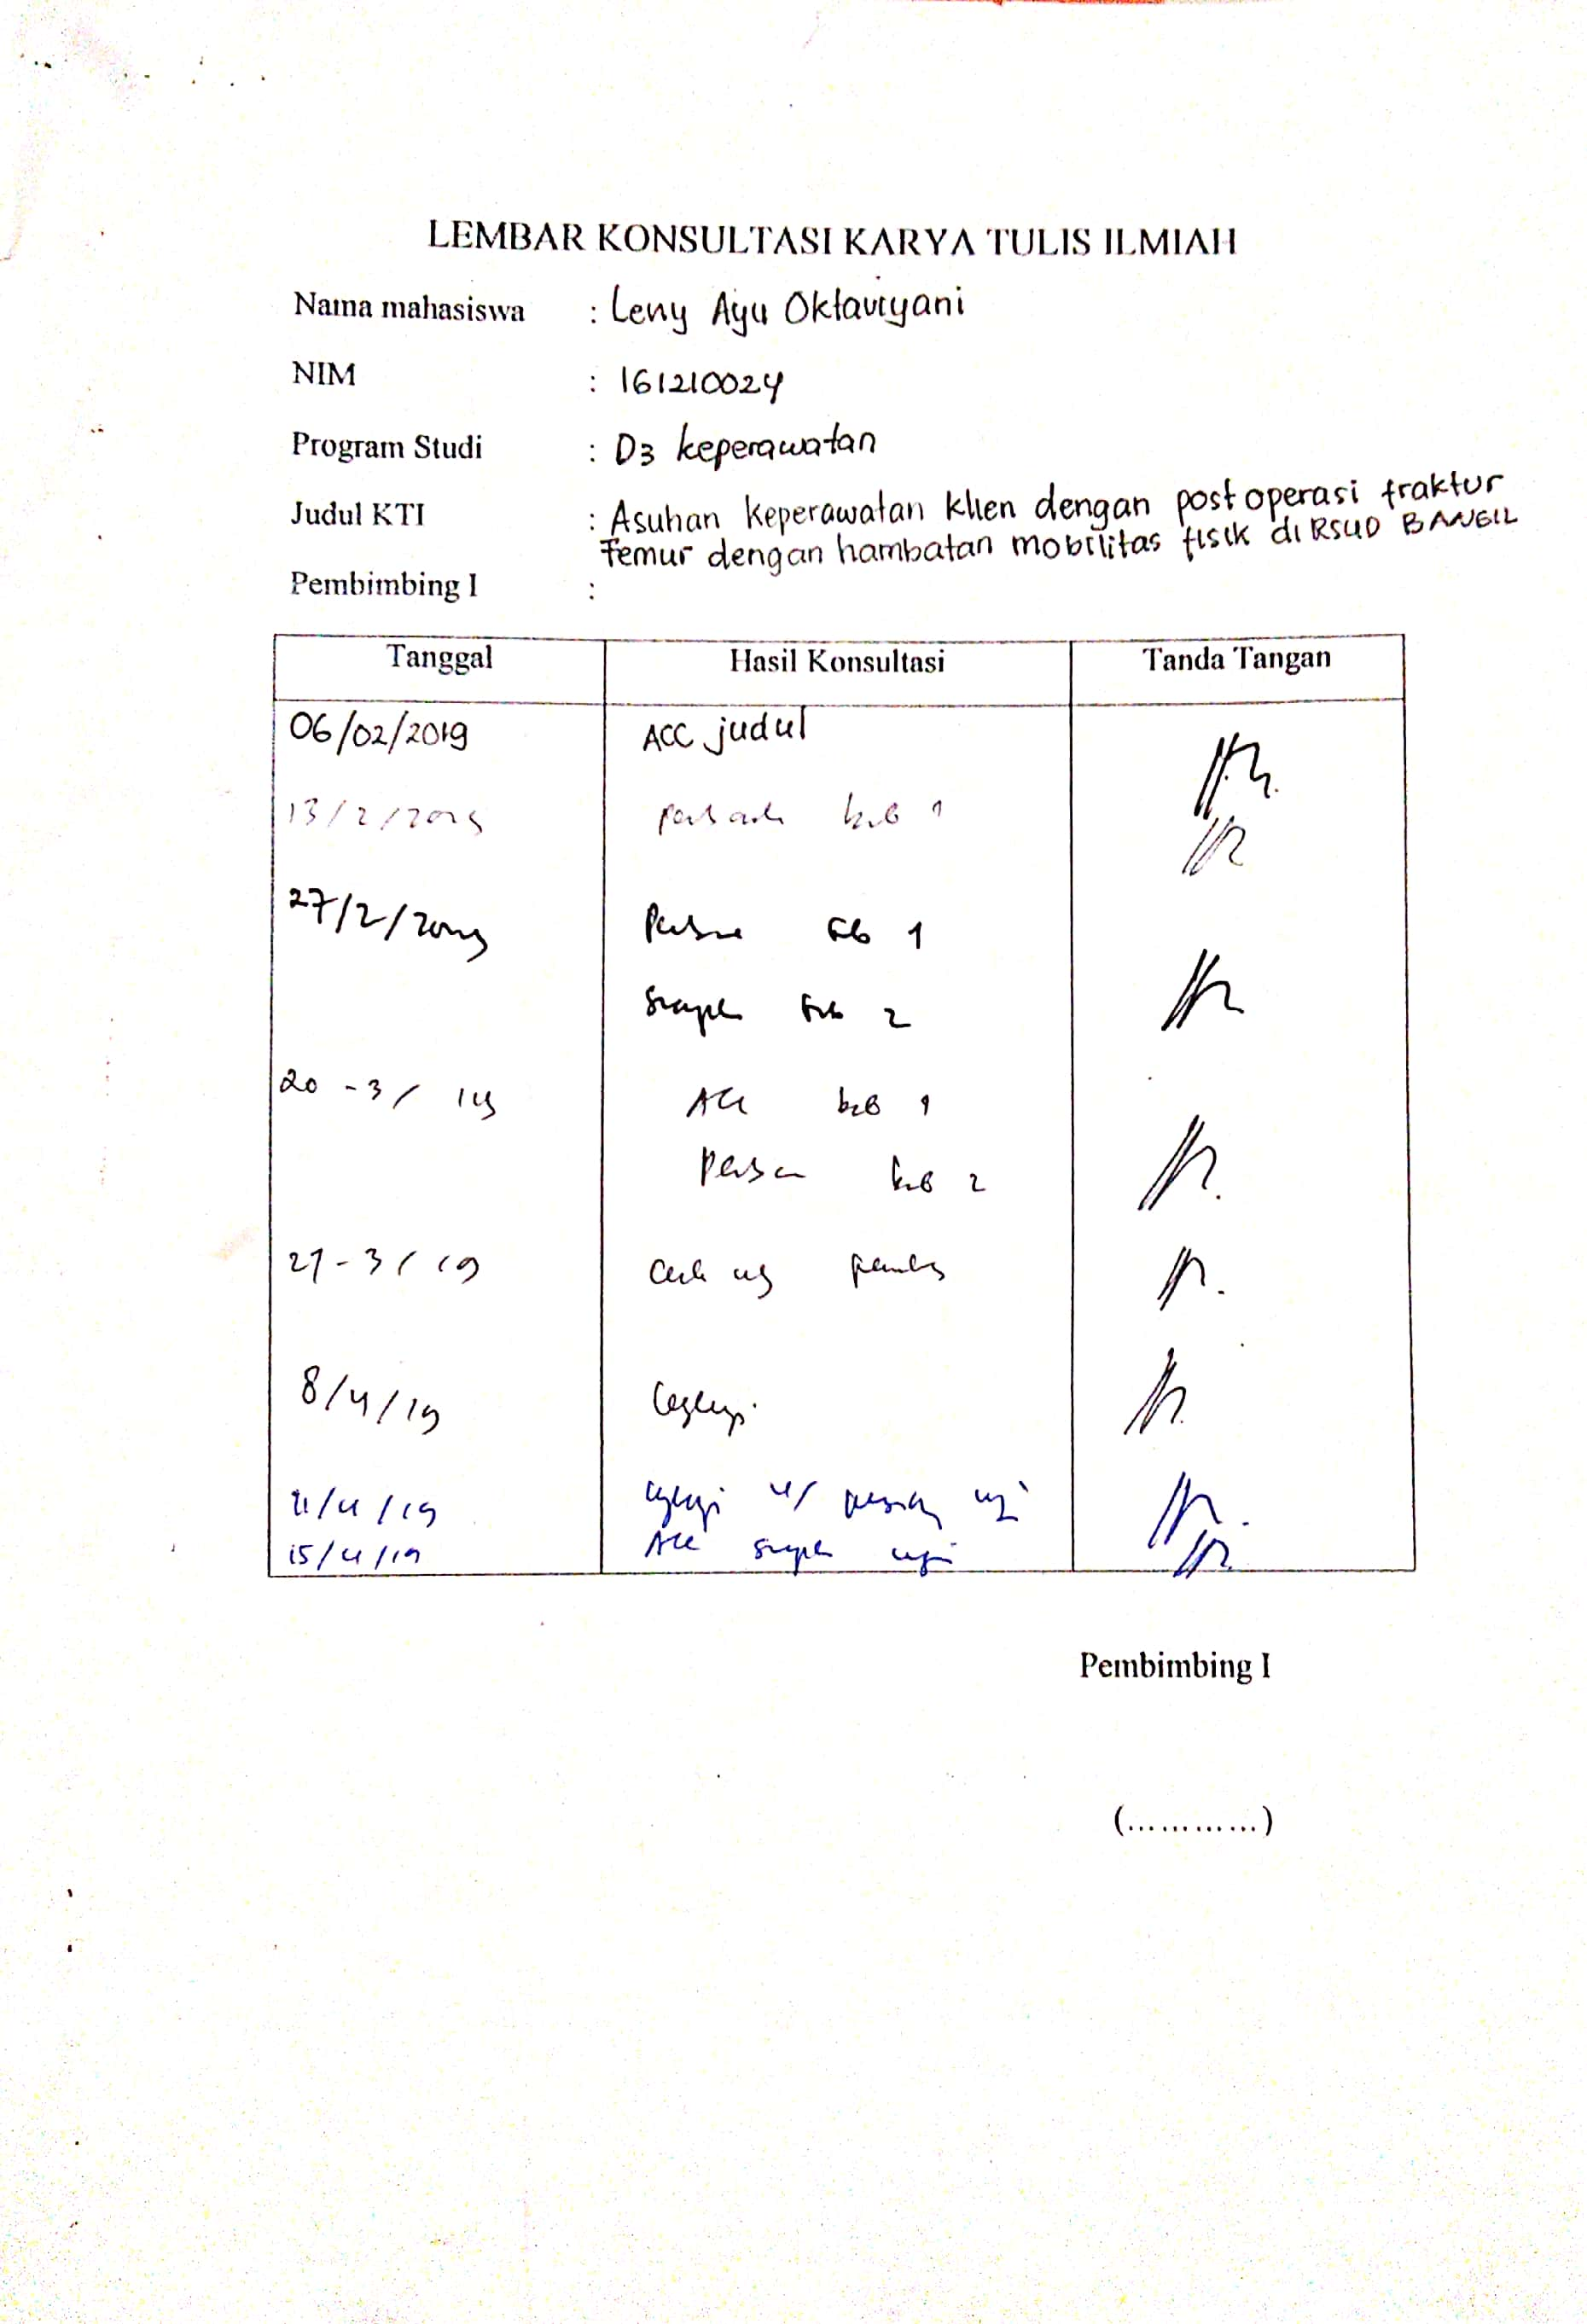 LEMBAR KONSULTASI KARYA TULIS ILMIAH
Nama mahasiswa : Leny Ayu Oktaviyani
NIM : 161210024
Program Studi : D3 keperawatan
Judul KTI : Asuhan keperawatan klien dengan post operasi fraktur
Femur dengan hambatan mobilitas fisik di RSUD BANGIL
Pembimbing I :
Tanggal Hasil Konsultasi Tanda Tangan
06/02/2019 ACC judul
13/2/2019 bab 1
27/2/2019 bab 1
bab 2
20-3/19 Acc bab 1
bab 2
27-3/19
8/4/19 Lengkapi
11/4/19 Lengkapi uji
15/4/19 Acc uji
Pembimbing I
(............)